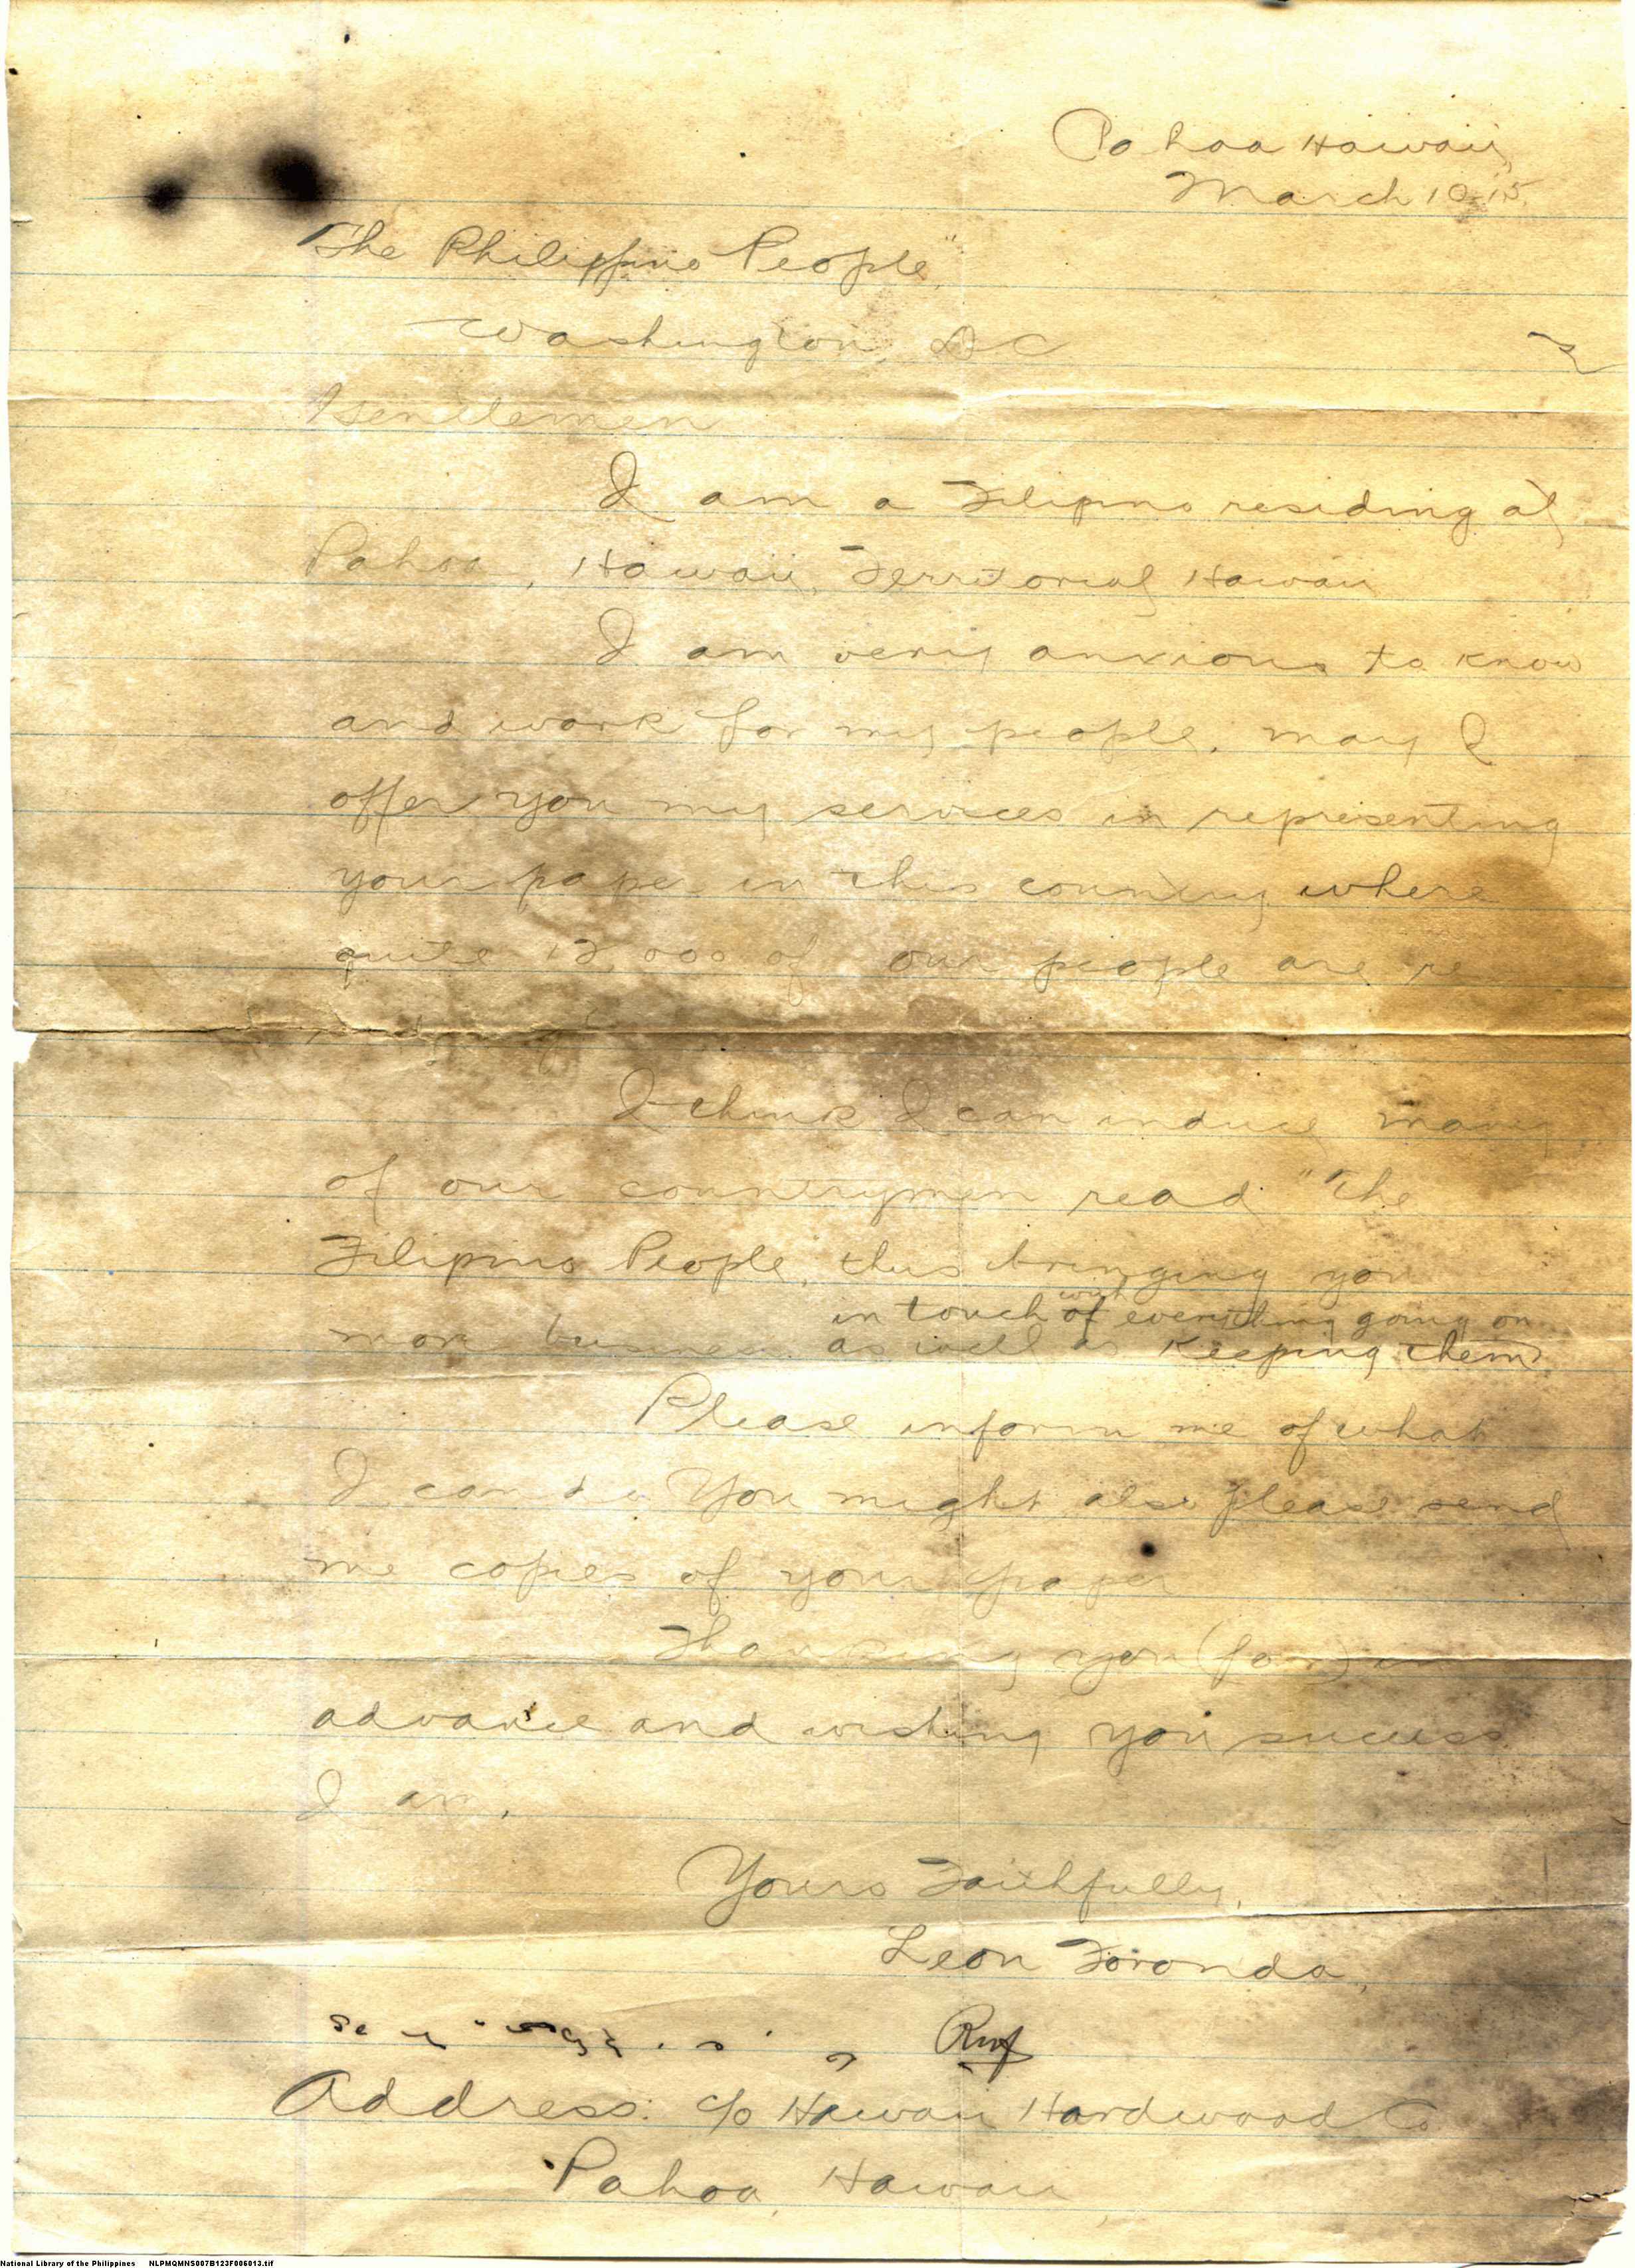 Pahoa Hawaii,
March 10-15.
"The Philippine People"
Washington, DC
Gentlemen
I am a Filipino residing at
Pahoa, Hawaii, Territorial Hawaii
I am very anxious to know
and work for my people. May I
offer you my services in representing
your paper in this country where
quite 12,000 of our people are re
I think I can induce many
of our countrymen read "The
Filipino People, thus bringing you
in touch with of everything going on
more business as well as Keeping them
Please inform me of what
I can do You might also please send
me copies of your paper
Thanking you (for) in
advance and wishing you success
I am,
Yours Faithfully,
Leon Foronda,
Address: c/o Hawaii Hardwood Co
Pahoa, Hawaii
National Library of the Philippines NLPMQMNS007B123F006013.tif